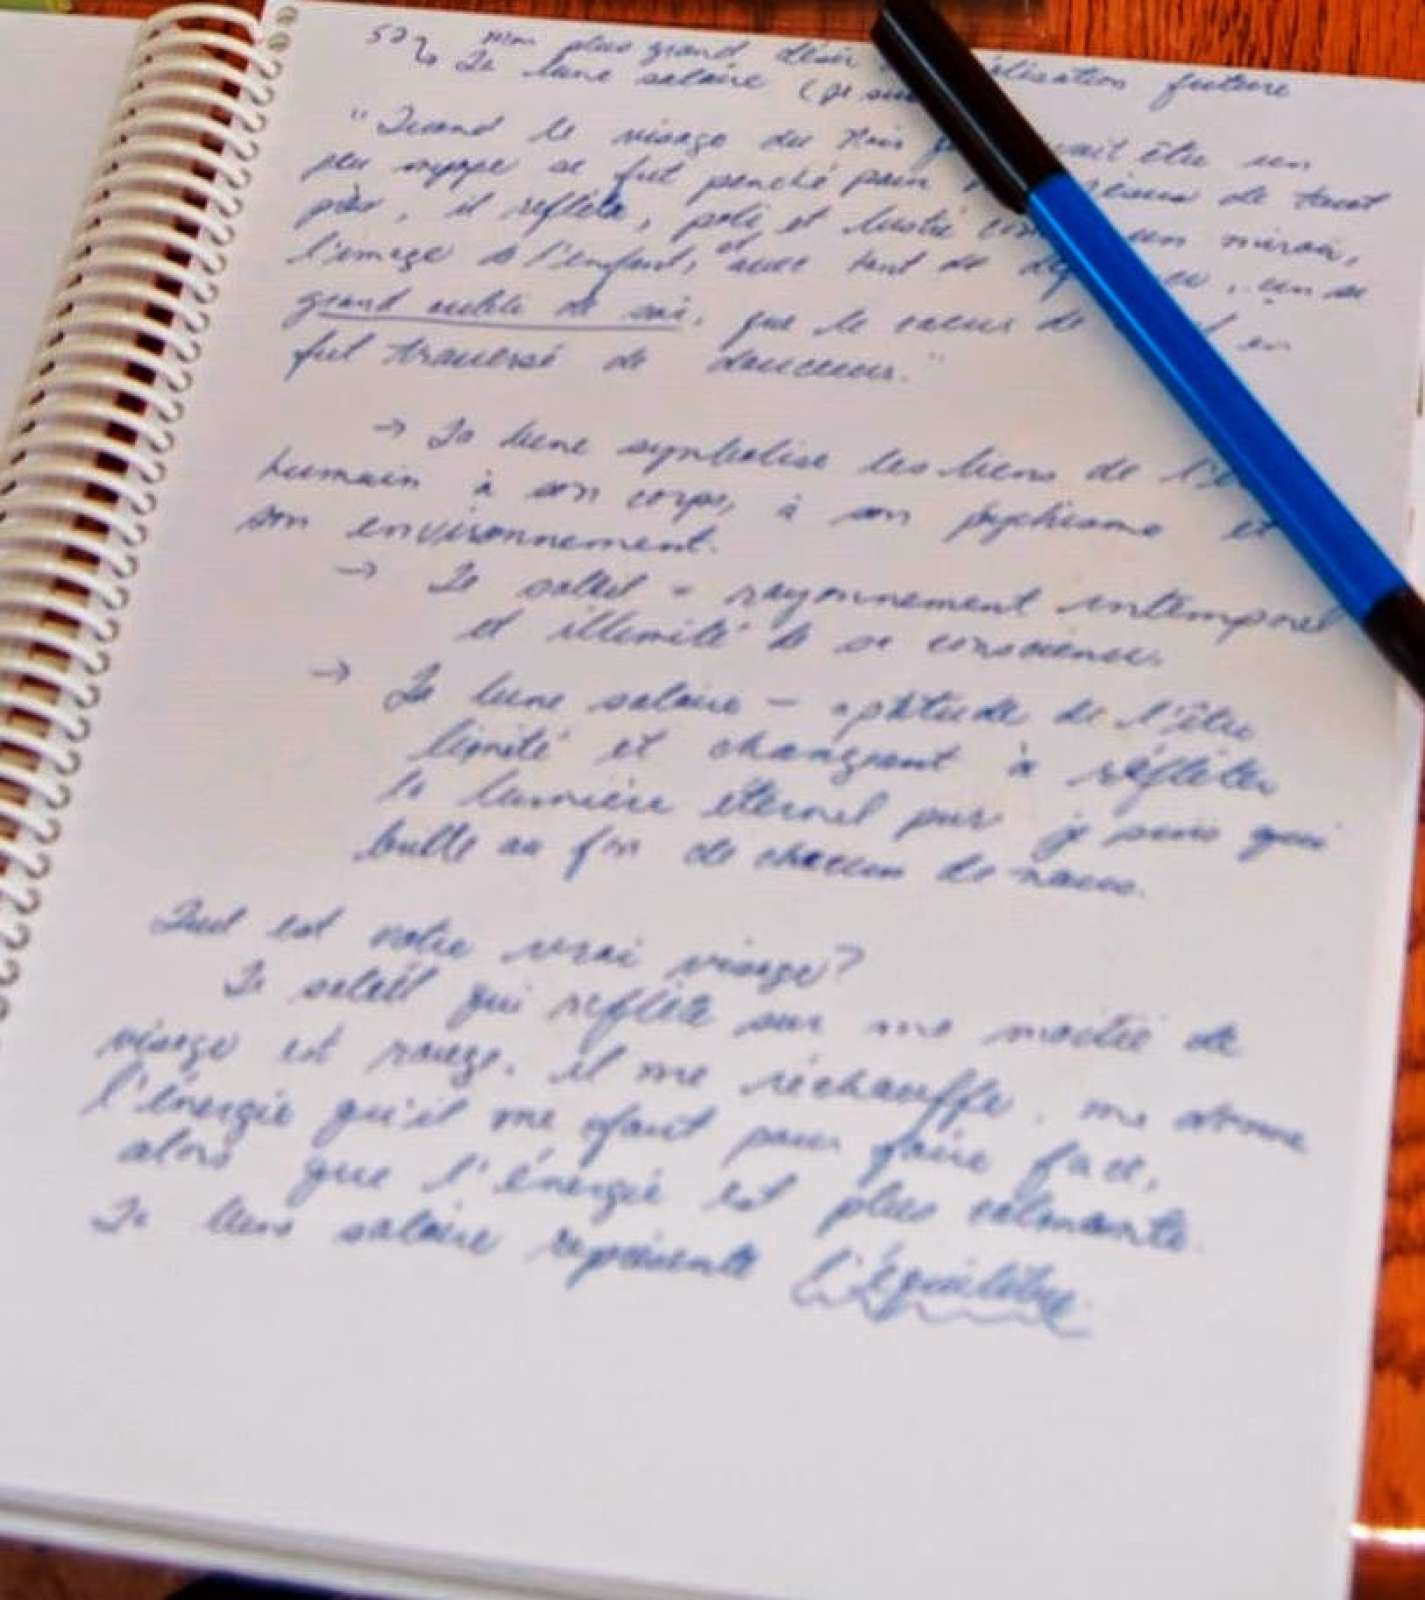 mon plus grand désir réalisation future
La lune solaire (je suis
"Quand le visage du Nain avait être un
peu myope se fut penché pour de tout
près, il refléta, poli et lustré un miroir,
l'image de l'enfant, et avec tant de un si
grand oubli de soi, que le coeur de en
fut traversé de douceur."
→ La lune symbolise les liens de
humain à son corps, à son psychisme et
son environnement.
→ Le soleil = rayonnement intemporel
et illimité de sa conscience.
→ La lune solaire – aptitude de l'être
limité et changeant à réfléter
la lumière éternel pur je suis qui
brille au fon de chacun de nous.
Quel est votre vrai visage?
Le soleil qui reflète sur ma moitié de
visage est rouge. il me réchauffe, me donne
l'énergie qu'il me faut pour faire face,
alors que l'énergie est plus calmante.
La lune solaire représente l'équilibre.